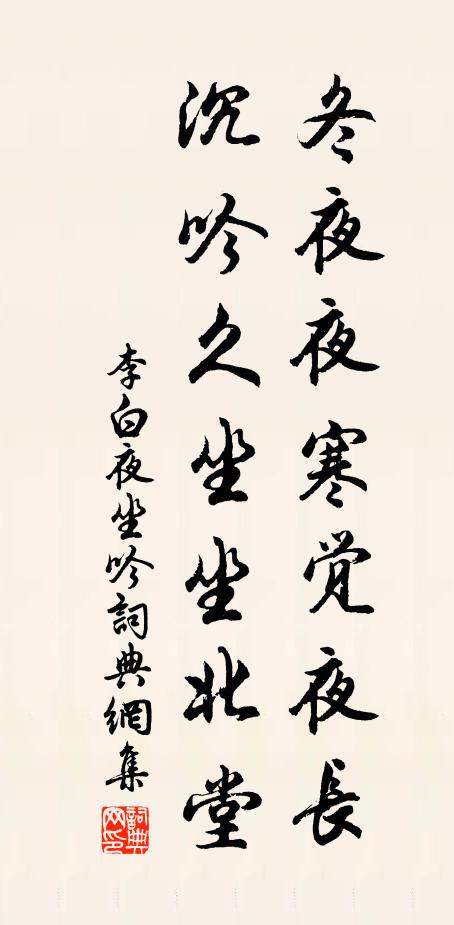 冬夜夜寒觉夜長
沉吟久坐坐北堂
李白夜坐吟詞典網集
詞典網印